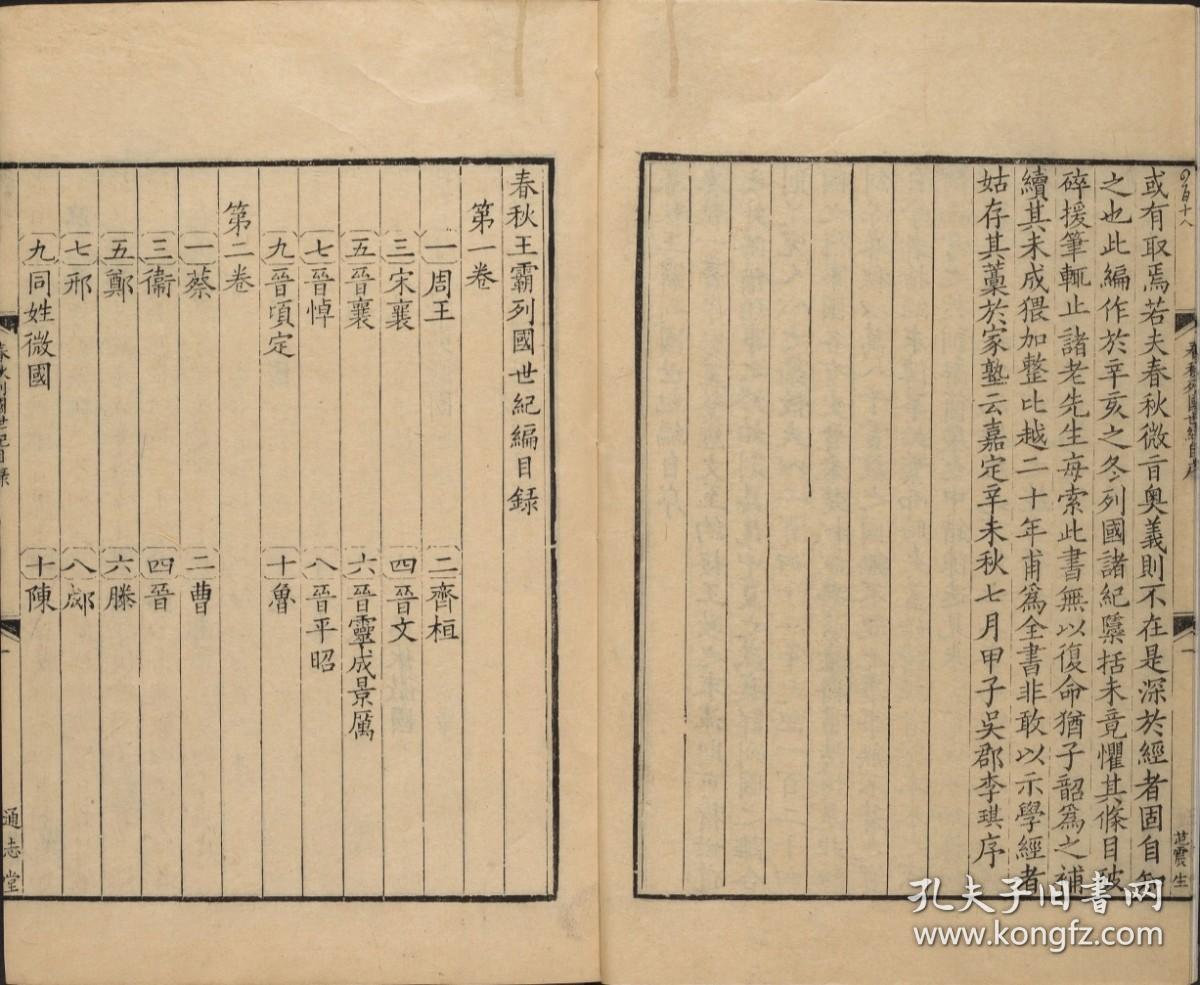 或有取焉若夫春秋微㫖奥義則不在是深於經者固自知
之也此編作於辛亥之冬列國諸紀檃括未竟懼其條目破
碎援筆輒止諸老先生每索此書無以復命猶子韶為之補
續其未成猥加整比越二十年甫為全書非敢以示學經者
姑存其藁於家塾云嘉定辛未秋七月甲子吳郡李琪序
春秋列國世紀自序
一
范震生
春秋王霸列國世紀編目録
第一卷
一周王 二齊桓
三宋襄 四晉文
五晉襄 六晉靈成景厲
七晉悼 八晉平昭
九晉頃定 十魯
第二卷
一蔡 二曹
三衞 四晉
五鄭 六滕
七邢 八郕
九同姓微國 十陳
春秋列國世紀目録
一
通志堂
孔夫子旧书网
www.kongfz.com